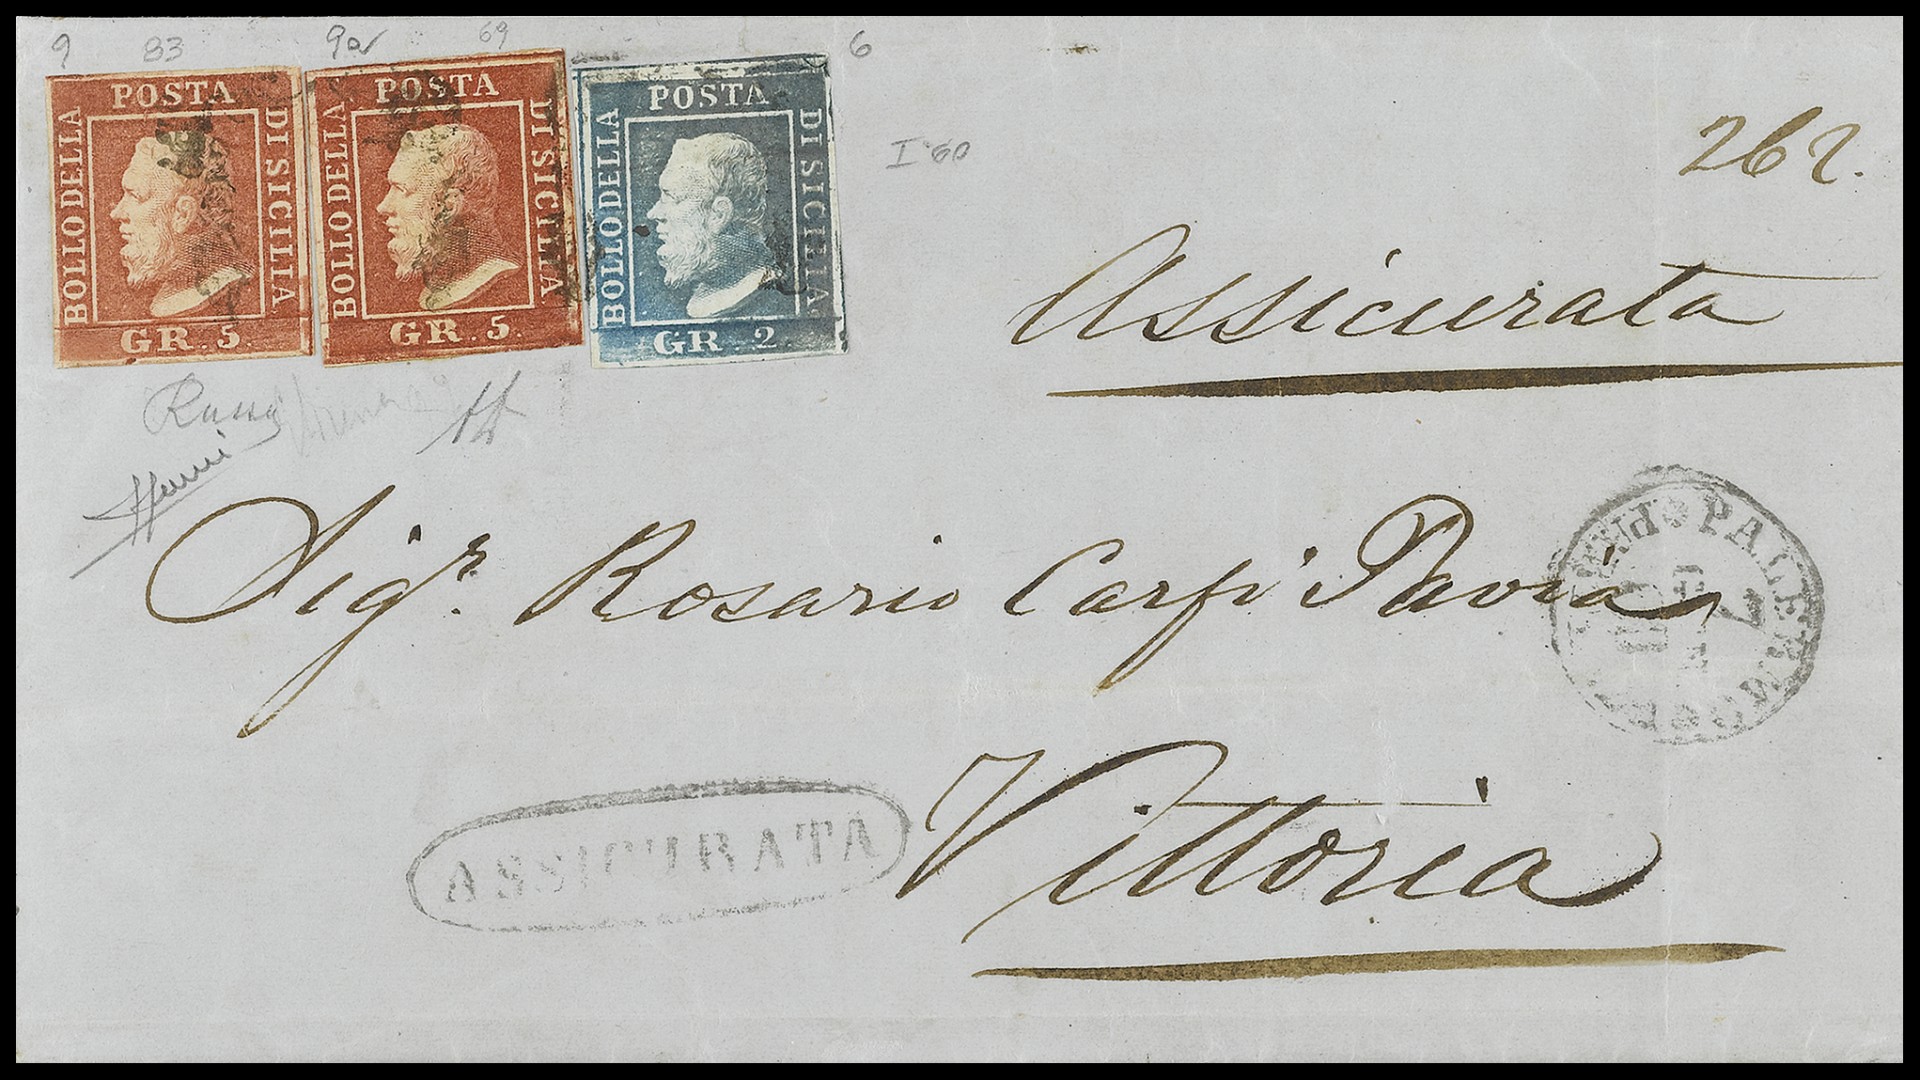 9 83 9a 69 6
POSTA
BOLLO DELLA
DI SICILIA
GR. 5.
POSTA
BOLLO DELLA
DI SICILIA
GR. 5.
POSTA
BOLLO DELLA
DI SICILIA
GR. 2.
I 60
262.
Assicurata
Sigr. Rosario Carpi Pavia
PALERMO
7
ASSICURATA
Vittoria